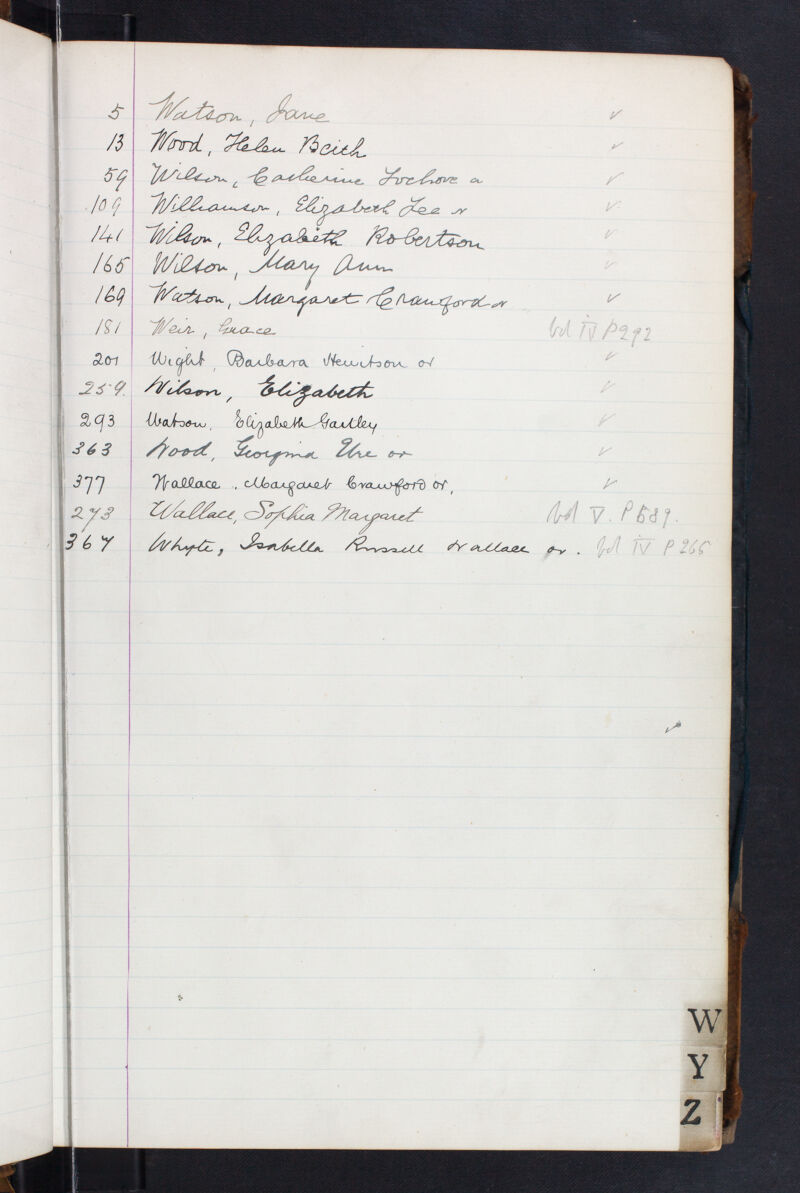 5 Watson, Jane ✓
13 Wood, Helen Beith ✓
59 Wilson, Catherine Lochore or ✓
109 Williamson, Elizabeth Lee or ✓
141 Wilson, Elizabeth Robertson ✓
165 Wilson, Mary Ann ✓
169 Watson, Margaret Crawford or ✓
181 Weir, Grace Vol IV P292
201 Wight, Barbara Hewitson or ✓
259. Wilson, Elizabeth ✓
293 Watson, Elizabeth Gartley ✓
363 Wood, Georgina Ure or ✓
377 Wallace, Margaret Crawford or, ✓
273 Wallace, Sophia Margaret Vol V. P589.
367 Whyte, Isabella Russell Wallace or. Vol IV P 265
✓
W
Y
Z